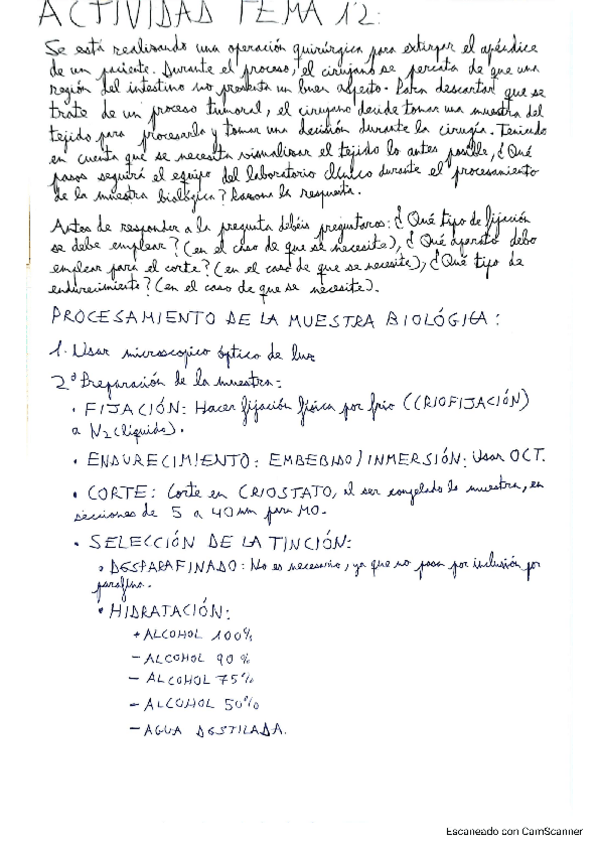 ACTIVIDAD TEMA 12:
Se está realizando una operación quirúrgica para extirpar el apéndice
de un paciente. Durante el proceso, el cirujano se percata de que una
región del intestino no presenta un buen aspecto. Para descartar que se
trate de un proceso tumoral, el cirujano decide tomar una muestra del
tejido para procesarla y tomar una decisión durante la cirugía. Teniendo
en cuenta que se necesita visualizar el tejido lo antes posible, ¿Qué
pasos seguirá el equipo del laboratorio clínico durante el procesamiento
de la muestra biológica? Razona la respuesta.
Antes de responder a la pregunta debéis preguntaros: ¿Qué tipo de fijación
se debe emplear? (en el caso de que se necesite), ¿Qué aparato debo
emplear para el corte? (en el caso de que se necesite), ¿Qué tipo de
endurecimiento? (en el caso de que se necesite).
PROCESAMIENTO DE LA MUESTRA BIOLÓGICA:
1. Usar microscopico óptico de luz
2º Preparación de la muestra:
• FIJACIÓN: Hacer fijación física por frío (CRIOFIJACIÓN)
a N2 (líquido).
• ENDURECIMIENTO: EMBEBIDO/INMERSIÓN: Usar OCT.
• CORTE: Corte en CRIOSTATO, al ser congelada la muestra, en
secciones de 5 a 40 para MO.
• SELECCIÓN DE LA TINCIÓN:
• DESPARAFINADO: No es necesario, ya que no pasa por inclusión por
parafina.
• HIDRATACIÓN:
+ ALCOHOL 100%
- ALCOHOL 90%
- ALCOHOL 75%
- ALCOHOL 50%
- AGUA DESTILADA.
Escaneado con CamScanner